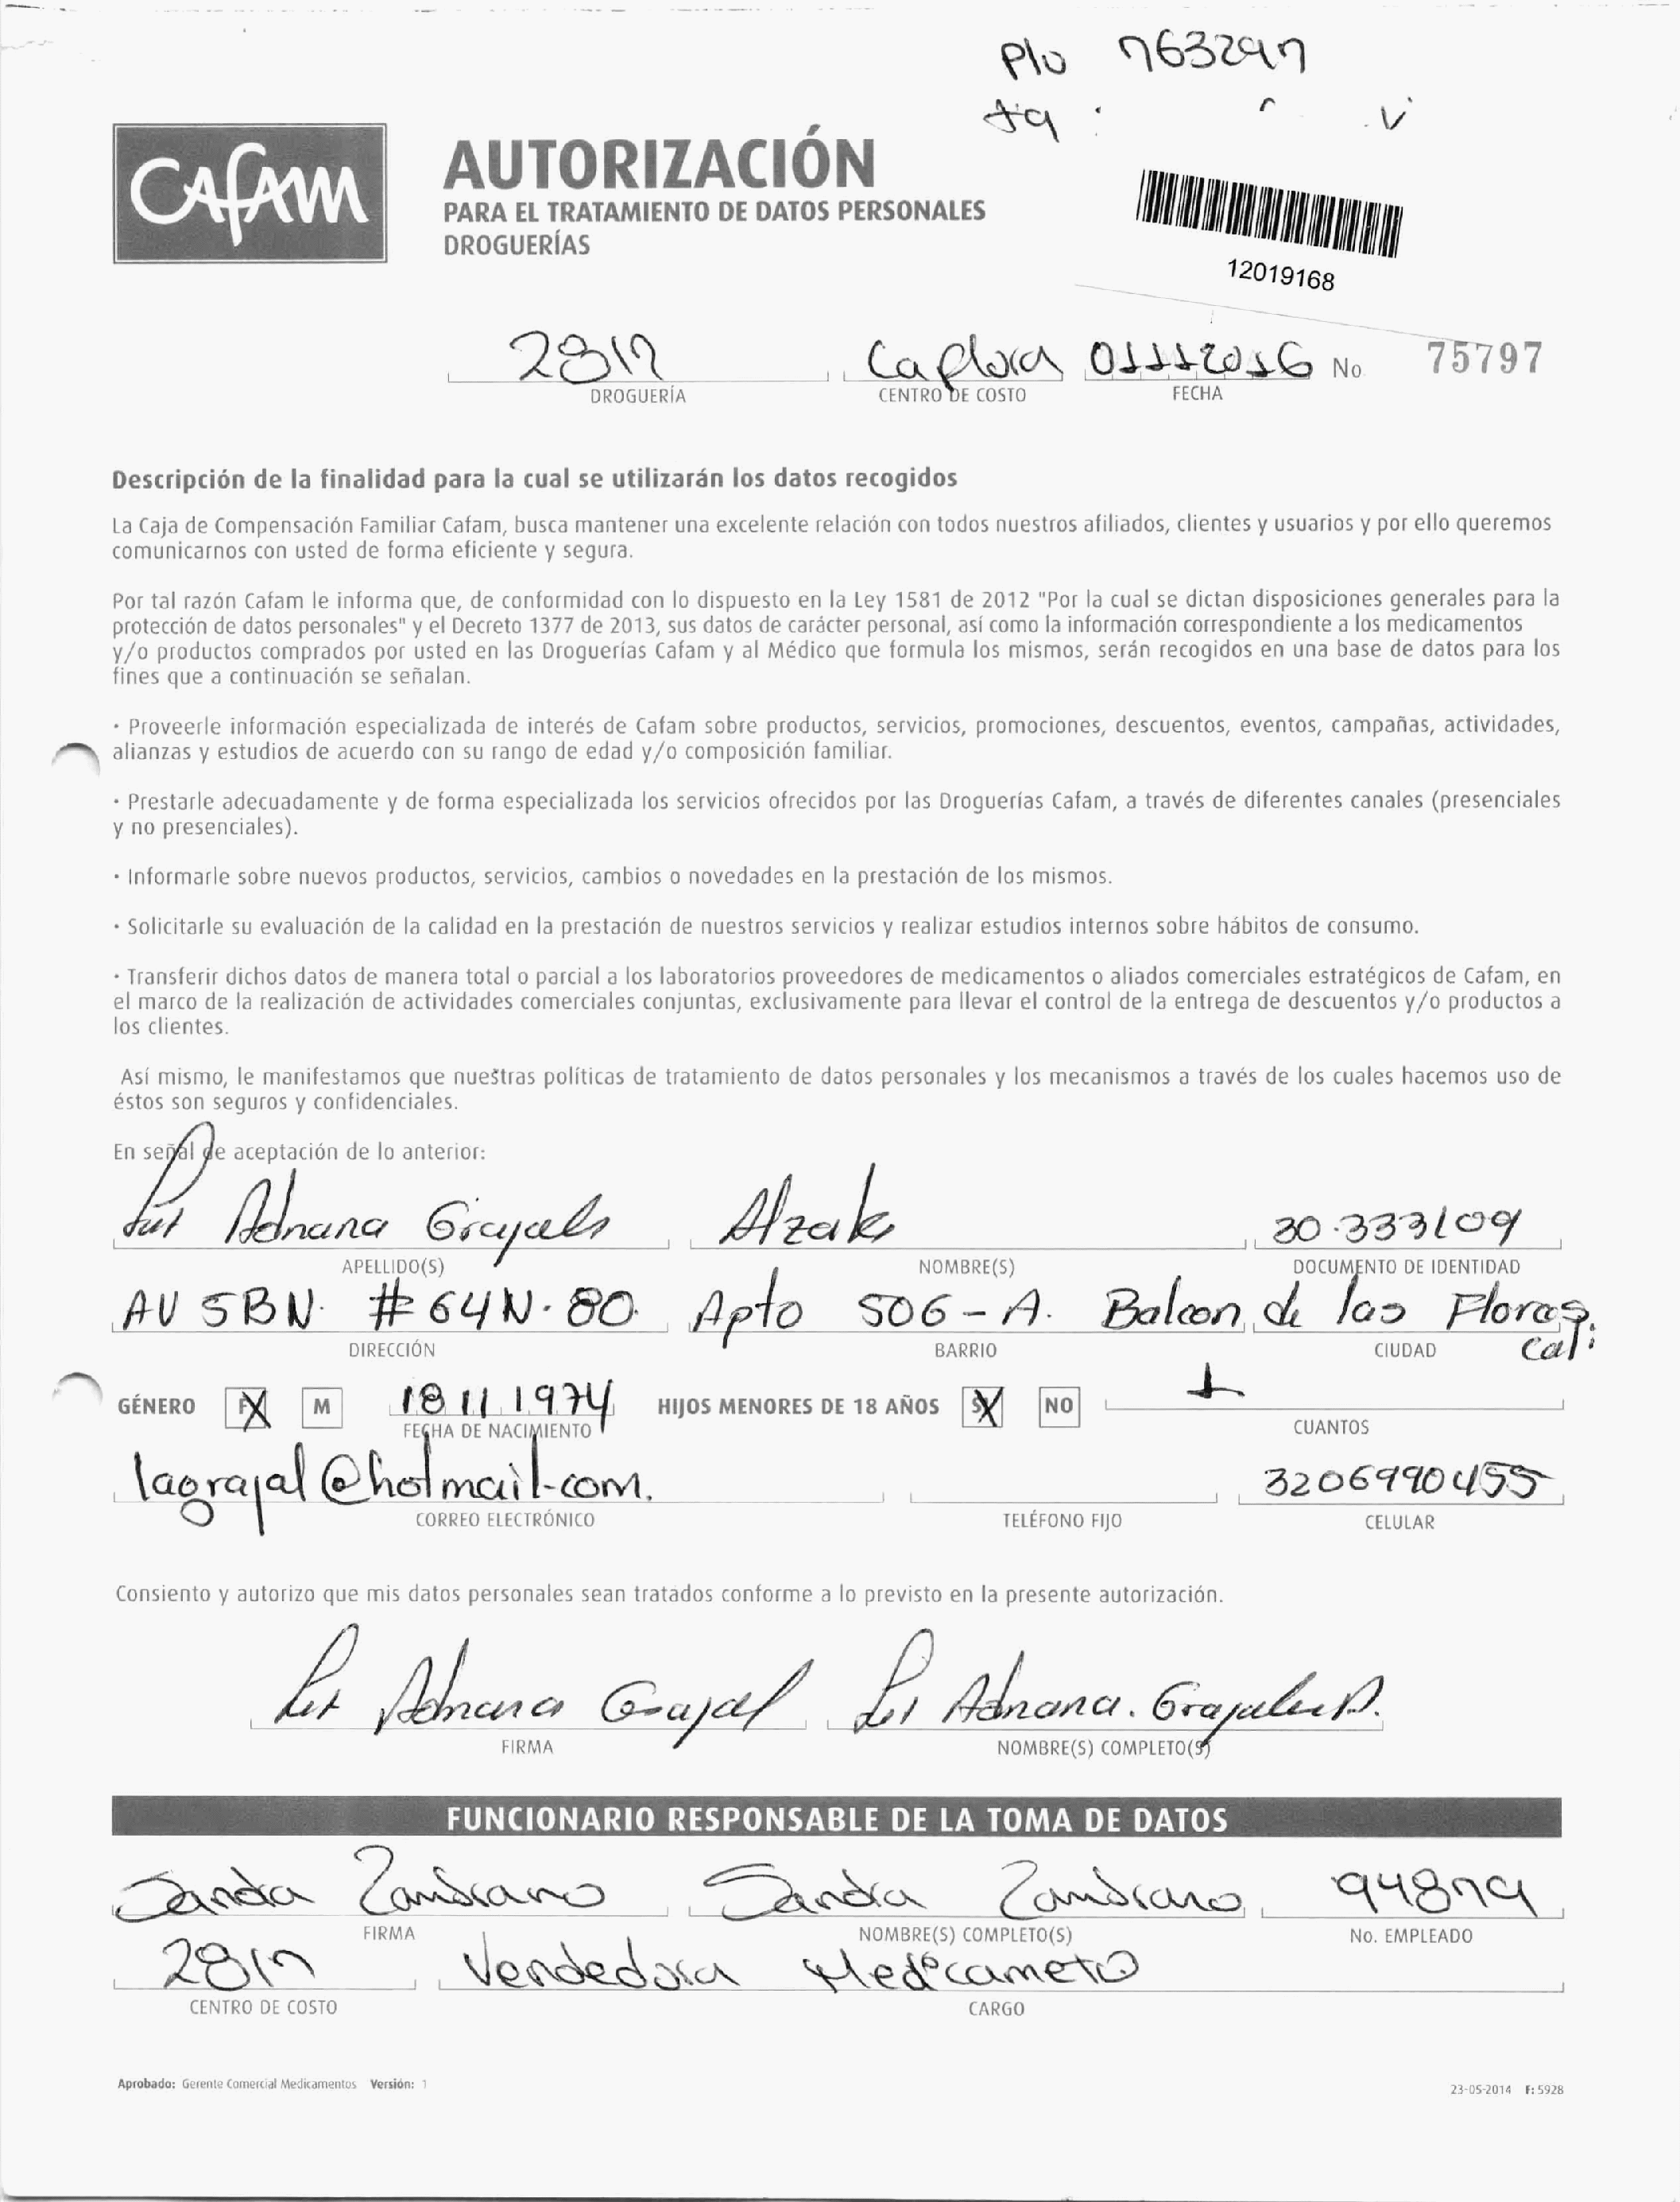 Plu 763297
CAFAM
AUTORIZACIÓN
PARA EL TRATAMIENTO DE DATOS PERSONALES
DROGUERÍAS
12019168
2817 La Flora 01112016 No. 75797
DROGUERÍA CENTRO DE COSTO FECHA
Descripción de la finalidad para la cual se utilizarán los datos recogidos
La Caja de Compensación Familiar Cafam, busca mantener una excelente relación con todos nuestros afiliados, clientes y usuarios y por ello queremos
comunicarnos con usted de forma eficiente y segura.
Por tal razón Cafam le informa que, de conformidad con lo dispuesto en la Ley 1581 de 2012 "Por la cual se dictan disposiciones generales para la
protección de datos personales" y el Decreto 1377 de 2013, sus datos de carácter personal, así como la información correspondiente a los medicamentos
y/o productos comprados por usted en las Droguerías Cafam y al Médico que formula los mismos, serán recogidos en una base de datos para los
fines que a continuación se señalan.
· Proveerle información especializada de interés de Cafam sobre productos, servicios, promociones, descuentos, eventos, campañas, actividades,
alianzas y estudios de acuerdo con su rango de edad y/o composición familiar.
· Prestarle adecuadamente y de forma especializada los servicios ofrecidos por las Droguerías Cafam, a través de diferentes canales (presenciales
y no presenciales).
· Informarle sobre nuevos productos, servicios, cambios o novedades en la prestación de los mismos.
· Solicitarle su evaluación de la calidad en la prestación de nuestros servicios y realizar estudios internos sobre hábitos de consumo.
· Transferir dichos datos de manera total o parcial a los laboratorios proveedores de medicamentos o aliados comerciales estratégicos de Cafam, en
el marco de la realización de actividades comerciales conjuntas, exclusivamente para llevar el control de la entrega de descuentos y/o productos a
los clientes.
Así mismo, le manifestamos que nuestras políticas de tratamiento de datos personales y los mecanismos a través de los cuales hacemos uso de
éstos son seguros y confidenciales.
En señal de aceptación de lo anterior:
Luz Adriana Grajales Alzate 30.333109
APELLIDO(S) NOMBRE(S) DOCUMENTO DE IDENTIDAD
AV 5BN. # 64N.80. Apto 506-A. Balcon de las Flores.
DIRECCIÓN BARRIO CIUDAD Cali
GÉNERO F X M 18 11 1974 HIJOS MENORES DE 18 AÑOS SI X NO 1
FECHA DE NACIMIENTO CUANTOS
lagrajal@hotmail.com. 3206990455
CORREO ELECTRÓNICO TELÉFONO FIJO CELULAR
Consiento y autorizo que mis datos personales sean tratados conforme a lo previsto en la presente autorización.
Luz Adriana Grajal Luz Adriana. Grajales A.
FIRMA NOMBRE(S) COMPLETO(S)
FUNCIONARIO RESPONSABLE DE LA TOMA DE DATOS
Sandra Zambrano Sandra Zambrano 94879
FIRMA NOMBRE(S) COMPLETO(S) No. EMPLEADO
2817 Vendedora Medicameto
CENTRO DE COSTO CARGO
Aprobado: Gerente Comercial Medicamentos Versión: 1 23-05-2014 F: 5928